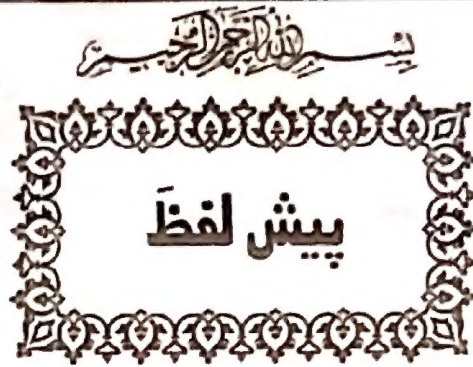 بسم الله الرحمن الرحيم
پیش لفظَ